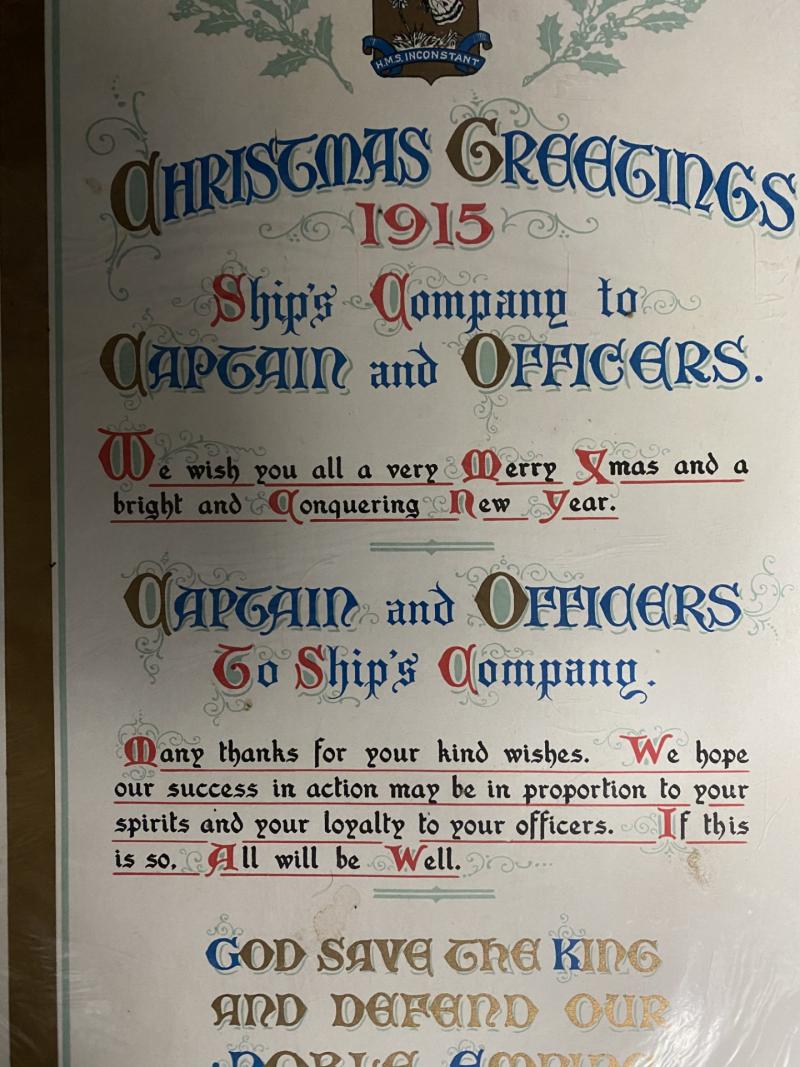 H.M.S. INCONSTANT
CHRISTMAS GREETINGS
1915
Ship's Company to
CAPTAIN and OFFICERS.
We wish you all a very Merry Xmas and a
bright and Conquering New Year.
CAPTAIN and OFFICERS
To Ship's Company.
Many thanks for your kind wishes. We hope
our success in action may be in proportion to your
spirits and your loyalty to your officers. If this
is so, All will be Well.
GOD SAVE THE KING
AND DEFEND OUR
NOBLE EMPIRE